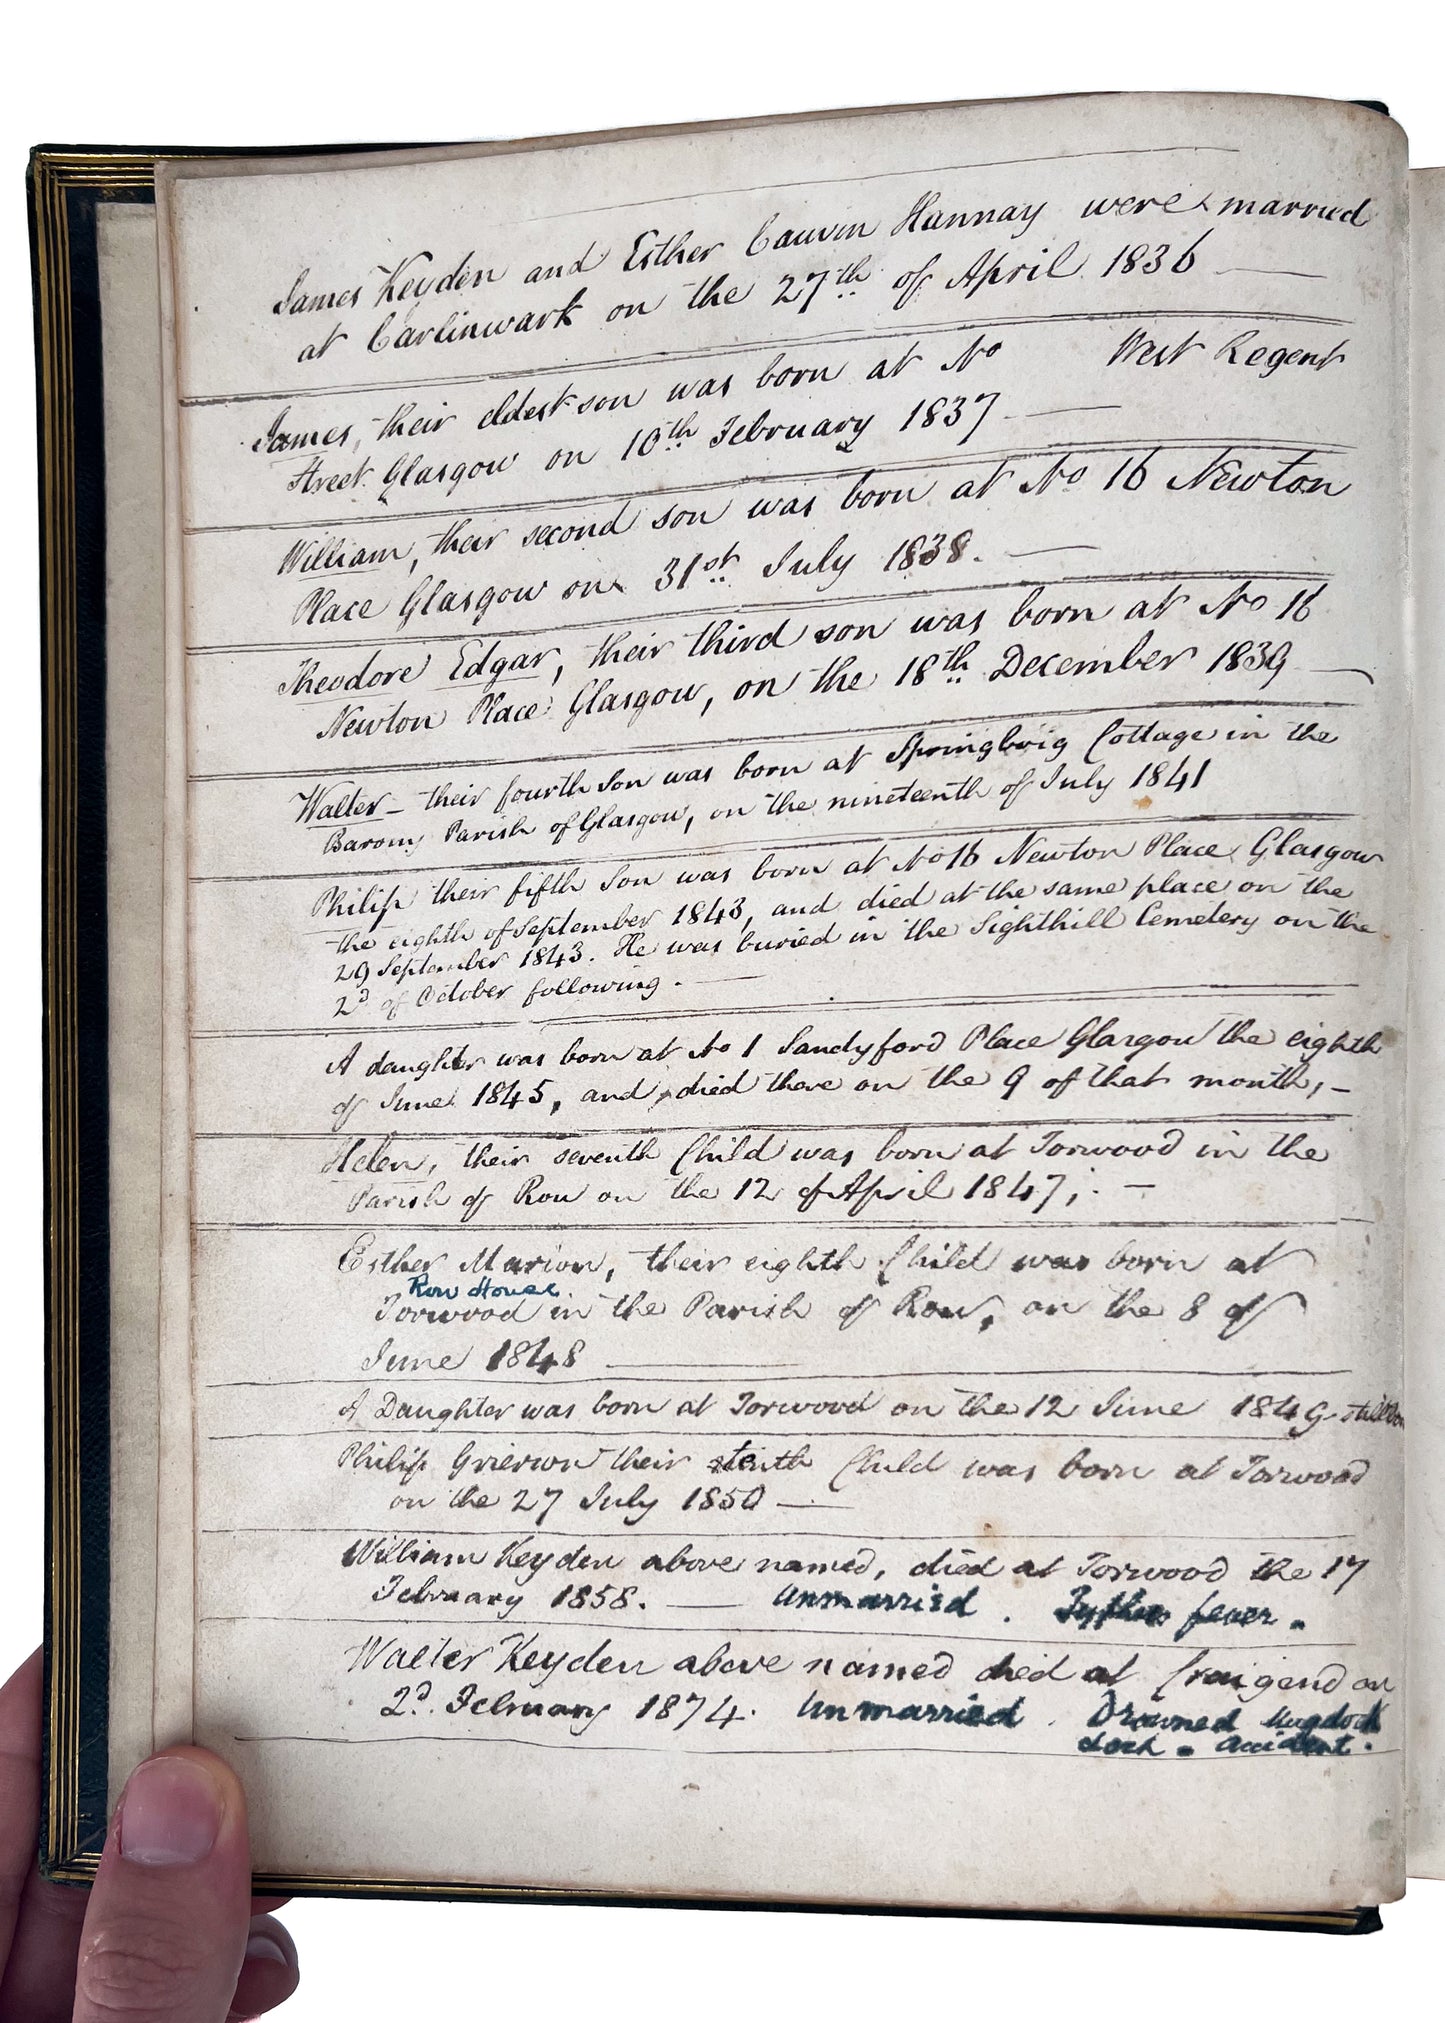 James Keyden and Esther Cauvin Hannay were married
at Carlinwark on the 27th of April 1836
James, their eldest son was born at No West Regent
Street Glasgow on 10th February 1837
William, their second son was born at No 16 Newton
Place Glasgow on 31st July 1838.
Theodore Edgar, their third son was born at No 16
Newton Place Glasgow, on the 18th December 1839
Walter - their fourth Son was born at Springboig Cottage in the
Barony Parish of Glasgow, on the nineteenth of July 1841
Philip their fifth Son was born at No 16 Newton Place Glasgow
the eighth of September 1843, and died at the same place on the
29 September 1843. He was buried in the Sighthill Cemetery on the
2d of October following.
A daughter was born at No 1 Sandyford Place Glasgow the eighth
of June 1845, and died there on the 9 of that month, -
Helen, their seventh Child was born at Torwood in the
Parish of Row on the 12 of April 1847,. -
Esther Marion, their eighth Child was born at
Row House
Torwood in the Parish of Row, on the 8 of
June 1848
A Daughter was born at Torwood on the 12 June 1849 - stillborn
Philip Grierson their tenth Child was born at Torwood
on the 27 July 1850
William Keyden above named, died at Torwood the 17
February 1858. Unmarried. Typhus fever.
Walter Keyden above named died at Craigend on
2d. February 1874. Unmarried. Drowned Mugdock
Loch - accident.